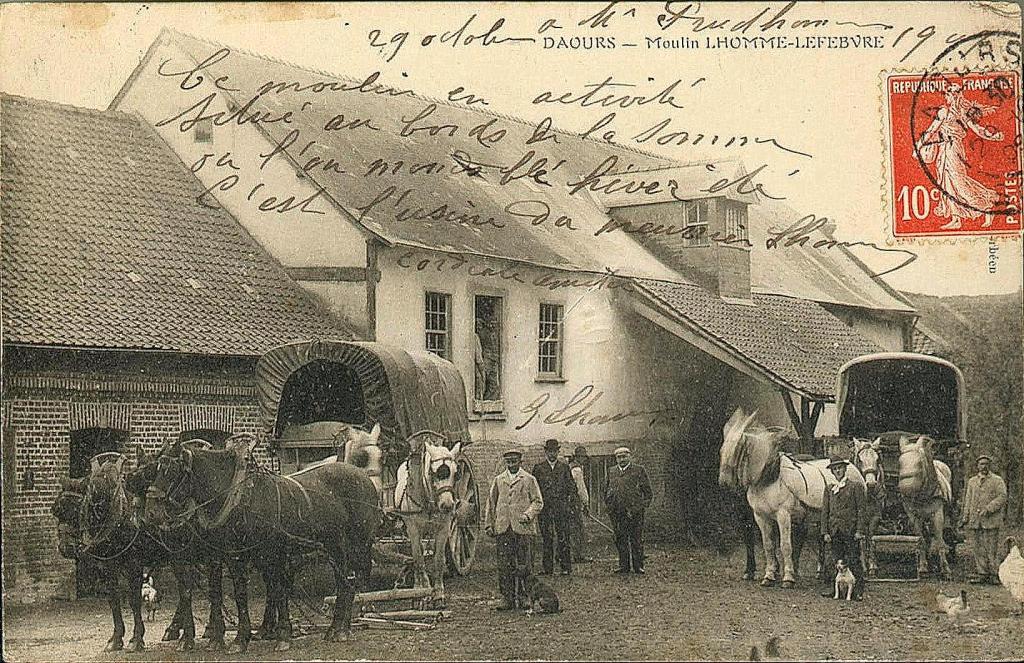 29 octob a Mr Prudhom 19
DAOURS — Moulin LHOMME-LEFEBVRE
Ce moulin en activité
Situé au bords de la Somme
ou l'on mouds blé hiver été
C'est l'usine du meunier Lhomm
cordiale amitié
REPUBLIQUE FRANÇAISE
10c
POSTES
DAOURS